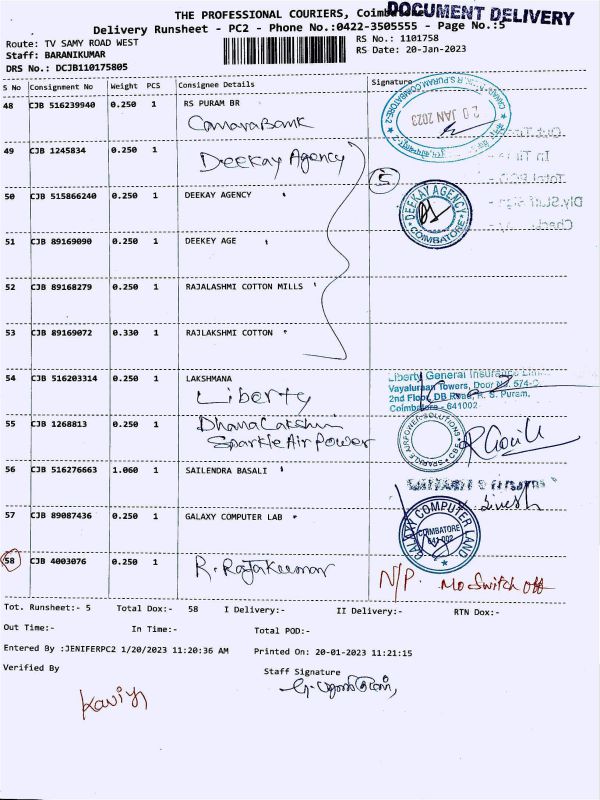 THE PROFESSIONAL COURIERS, Coimbatore
DOCUMENT DELIVERY
Delivery Runsheet - PC2 - Phone No.:0422-3505555 - Page No.:5
Route: TV SAMY ROAD WEST
RS No.: 1101758
Staff: BARANIKUMAR
RS Date: 20-Jan-2023
DRS No.: DCJB110175805
S No Consignment No Weight PCS Consignee Details Signature
48 CJB 516239940 0.250 1 RS PURAM BR
Canara Bank
20 JAN 2023
49 CJB 1245834 0.250 1 Deekay Agency
5
50 CJB 515866240 0.250 1 DEEKAY AGENCY
DEEKAY AGENCY
COIMBATORE
51 CJB 89169090 0.250 1 DEEKEY AGE
52 CJB 89168279 0.250 1 RAJALASHMI COTTON MILLS
53 CJB 89169072 0.330 1 RAJLAKSHMI COTTON
54 CJB 516203314 0.250 1 LAKSHMANA
Liberty
Liberty General Insurance
Vayaluraan Towers, Door No. 574-C
2nd Floor, DB Road, R. S. Puram,
Coimbatore - 641002
55 CJB 1268813 0.250 1 Dhanalakshmi
Sparkle Air Power
SPARKLE AIRPOWER SOLUTIONS
CBE
56 CJB 516276663 1.060 1 SAILENDRA BASALI
57 CJB 89087436 0.250 1 GALAXY COMPUTER LAB
GALAXY COMPUTER LAND
COIMBATORE
641 002
58 CJB 4003076 0.250 1 R. Rajakumar
N/P. Mo Switch off
Tot. Runsheet:- 5 Total Dox:- 58 I Delivery:- II Delivery:- RTN Dox:-
Out Time:- In Time:- Total POD:-
Entered By :JENIFERPC2 1/20/2023 11:20:36 AM Printed On: 20-01-2023 11:21:15
Verified By Staff Signature